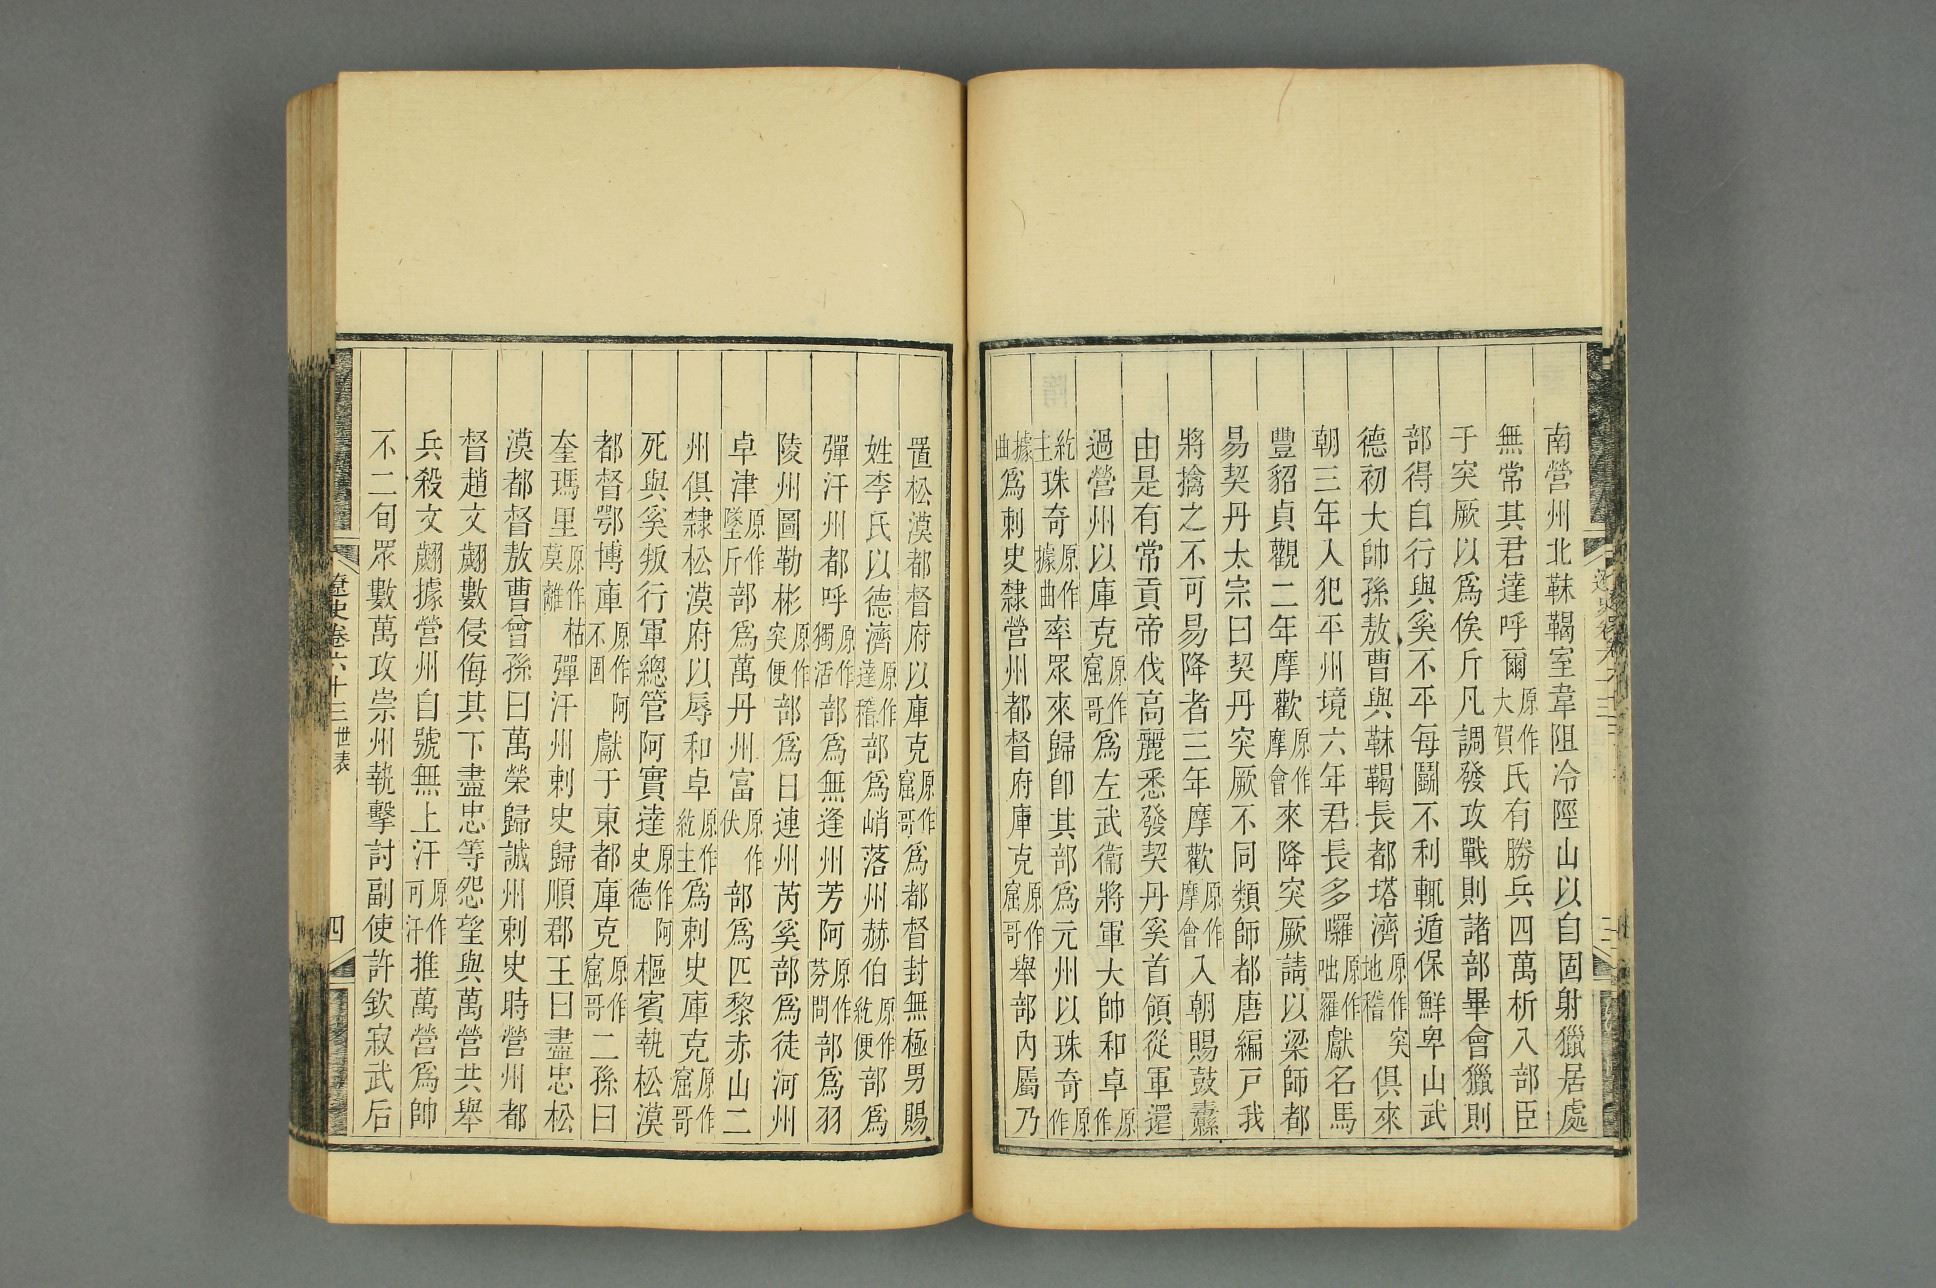 南營州北靺鞨室韋阻冷陘山以自固射獵居處
無常其君達呼爾原作大賀氏有勝兵四萬析八部臣
于突厥以爲俟斤凡調發攻戰則諸部畢會獵則
部得自行與奚不平每鬭不利輒遁保鮮卑山武
德初大帥孫敖曹與靺鞨長都塔濟原作突地稽俱來
朝三年入犯平州境六年君長多囉原作咄羅獻名馬
豐貂貞觀二年摩歡原作摩會來降突厥請以梁師都
易契丹太宗曰契丹突厥不同類師都唐編戸我
將擒之不可易降者三年摩歡原作摩會入朝賜鼓纛
由是有常貢帝伐高麗悉發契丹奚首領從軍還
過營州以庫克原作窟哥爲左武衞將軍大帥和卓原作
紇主珠奇原作據曲率眾來歸卽其部爲元州以珠奇原作
據曲爲刺史隸營州都督府庫克原作窟哥舉部內屬乃
置松漠都督府以庫克原作窟哥爲都督封無極男賜
姓李氏以德濟原作達稽部爲峭落州赫伯原作紇便部爲
彈汗州都呼原作獨活部爲無逢州芳阿原作芬問部爲羽
陵州圖勒彬原作突便部爲日連州芮奚部爲徒河州
卓津原作墜斤部爲萬丹州富原作伏部爲匹黎赤山二
州俱隸松漠府以辱和卓原作紇主爲刺史庫克原作窟哥
死與奚叛行軍總管阿實達原作阿史德樞賓執松漠
都督鄂博庫原作阿不固獻于東都庫克原作窟哥二孫曰
奎瑪里原作枯莫離彈汗州刺史歸順郡王曰盡忠松
漠都督敖曹曾孫曰萬榮歸誠州刺史時營州都
督趙文翽數侵侮其下盡忠等怨望與萬營共舉
兵殺文翽據營州自號無上汗原作可汗推萬營爲帥
不二旬眾數萬攻崇州執擊討副使許欽寂武后
遼史卷六十三 世表
四